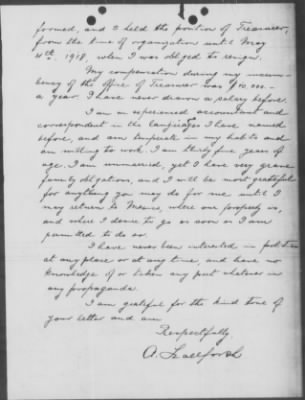 formed, and I held the position of Treasurer,
from the time of organization until May
4th 1918, when I was obliged to resign.
My compensation during my incum-
bency of the office of Treasurer was $10.000.-
a year. I have never drawn a salary before.
I am an experienced accountant and
correspondent in the languages I have named
before, and am temperate in my habits and
am willing to work. I am thirty five years of
age. I am unmarried, yet I have very grave
family obligations, and I will be most grateful
for anything you may do for me until I
may return to Mexico, where our property is,
and where I desire to go as soon as I am
permitted to do so.
I have never been interested in politics
at any place or at any time, and have no
knowledge of or taken any part whatever in
any propaganda.
I am grateful for the kind tone of
your letter and am
Respectfully,
A.